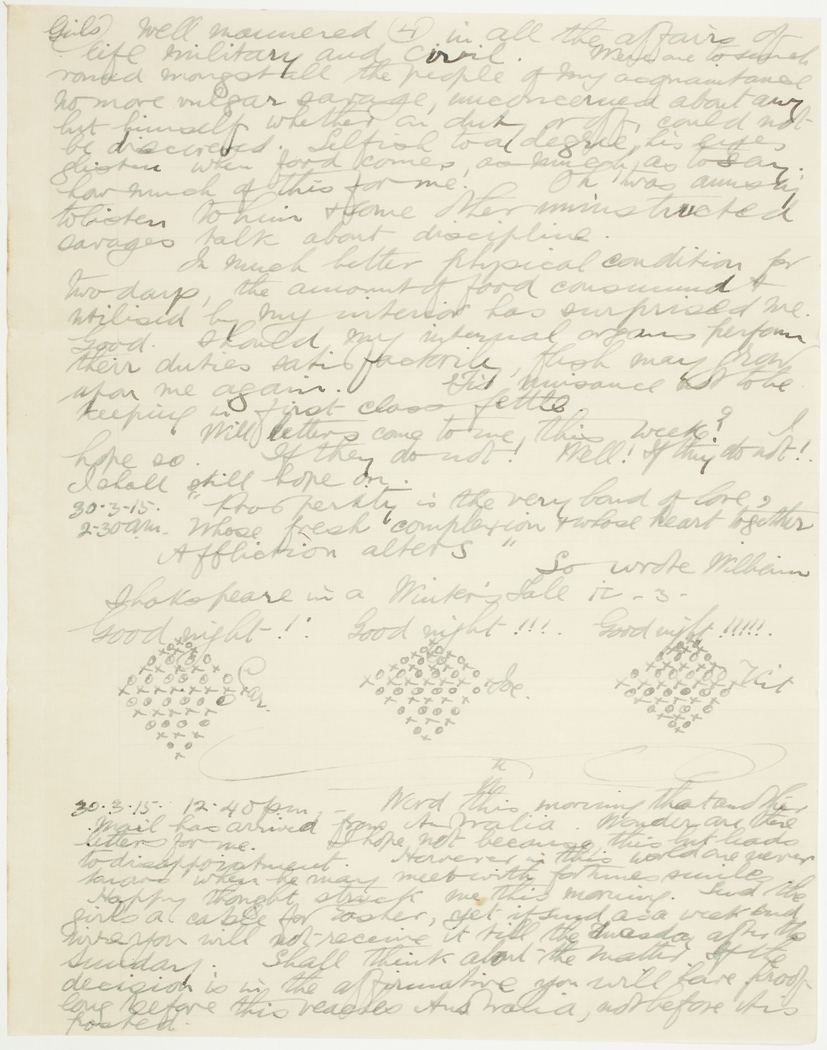 Girls) Well mannered (4) in all the affairs of
life military and civil. Were one to search
round mongst all the people of my acquaintance
no more vulgar savage, unconcerned about any
but himself whether on duty or off, could not
be discovered. Selfish to a degree, his eyes
glisten when food comes, as much as to say.
how much of this for me. Oh 'twas amusing
to listen to him & some other uninstructed
savages talk about discipline.
In much better physical condition for
two days, the amount of food consumed &
utilised by my interior has surprised me.
Good. Should my internal organs perform
their duties satisfactorily, flesh may grow
upon me again. 'Tis nuisance not to be
keeping in first class fettle
Will letters come to me, this week? I
hope so. If they do not! Well! If they do not!.
I shall still hope on.
30-3-15. "Prosperity is the very bond of love,
2-30am. Whose fresh complexion & whose heart together
Affliction alters"
So wrote William
Shakespeare in a Winter's Tale IV - 3 -
Good night!! Good night!!!. Good night!!!!!.
Joe. Kit
30-3-15. 12-40pm, - Word this morning that another
mail has arrived from Australia. Wonder are there
letters for me. I hope not because this but leads
to disappointment. However in this world one never
knows when he may meet with fortunes smile
Happy thought struck me this morning. Send the
girls a cable for Easter, yet if send as a week end
wire you will not receive it till the Tuesday after the
Sunday. Shall think about the matter. If the
decision is in the affirmative you will have proof
long before this reaches Australia, not before it is
posted.